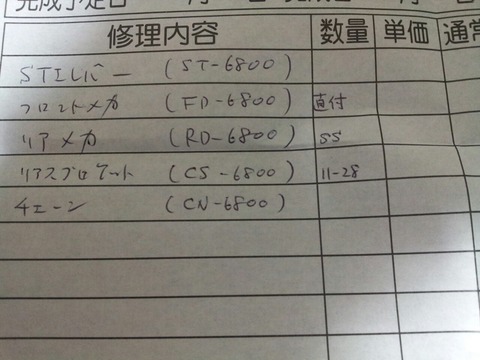 完成予定日 月 完成日 月
修理内容 数量 単価 通常
STIレバー (ST-6800)
フロントメカ (FD-6800) 直付
リアメカ (RD-6800) SS
リアスプロケット (CS-6800) 11-28
チェーン (CN-6800)